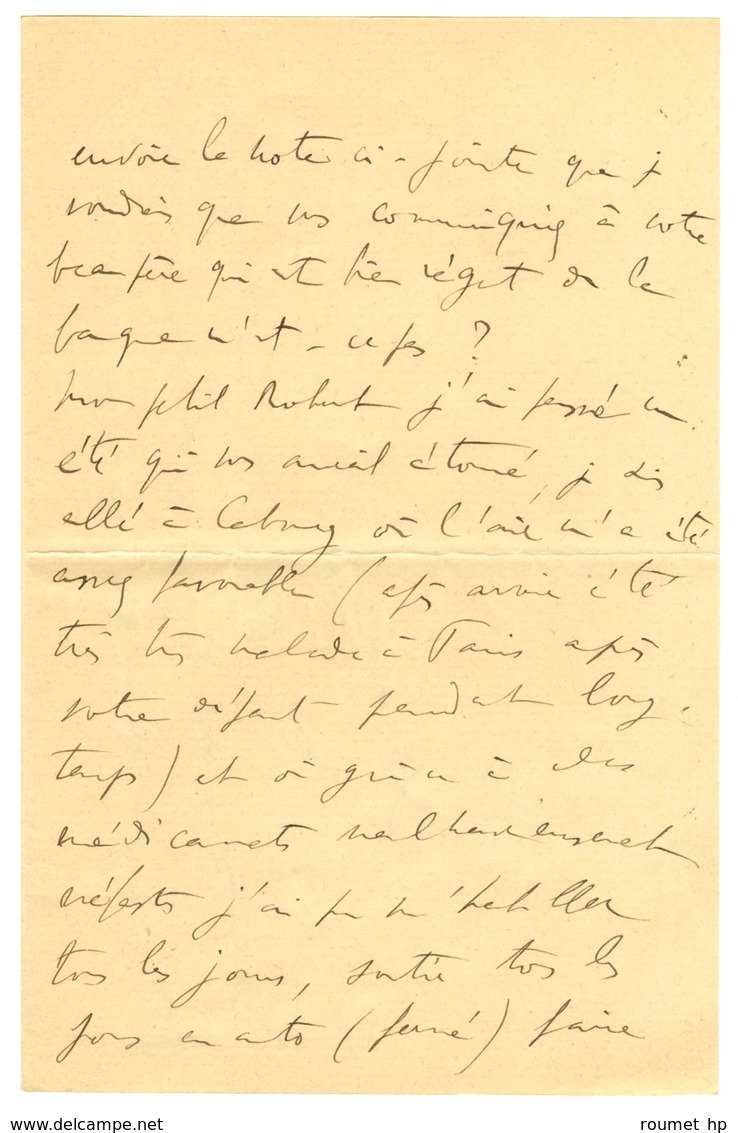 envoie la note ci-jointe que je
voudrais que vous communiquiez à votre
beau père qui est bien régent de la
banque n'est-ce pas ?
Mon petit Robert j'ai passé un
été qui vous aurait étonné, je suis
allé à Cabourg où l'air m'a été
assez favorable (après avoir été
très très malade à Paris après
votre départ pendant long-
temps) et où grâce à des
médicaments malheureusement
néfastes j'ai pu m'habiller
tous les jours, sortir tous les
jours en auto (fermé) faire
www.delcampe.net
roumet hp